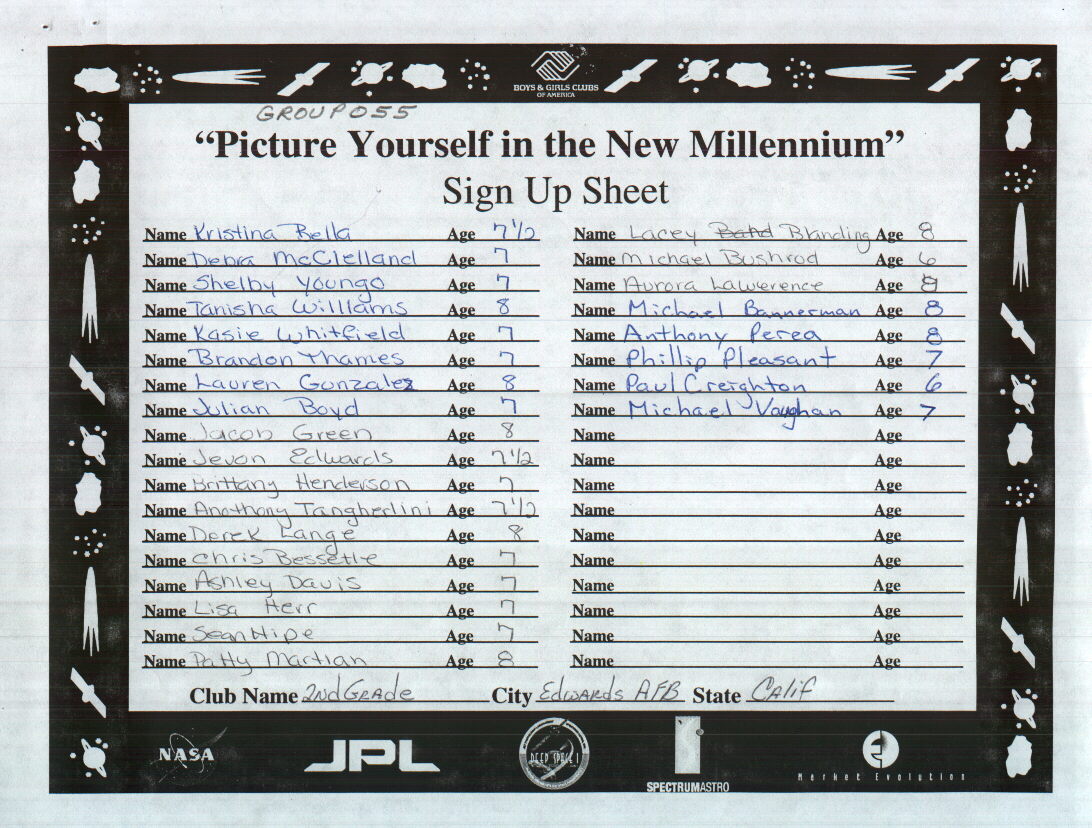 BOYS & GIRLS CLUBS
OF AMERICA
GROUP 055
“Picture Yourself in the New Millennium”
Sign Up Sheet
Name Kristina Rella Age 7 1/2
Name Debra McClelland Age 7
Name Shelby Youngo Age 7
Name Tanisha Williams Age 8
Name Kasie Whitfield Age 7
Name Brandon Thames Age 7
Name Lauren Gonzalez Age 8
Name Julian Boyd Age 7
Name Jacob Green Age 8
Name Jevon Edwards Age 7 1/2
Name Brittany Henderson Age 7
Name Anothony Tangherlini Age 7 1/2
Name Derek Lange Age 8
Name Chris Bessette Age 7
Name Ashley Davis Age 7
Name Lisa Herr Age 7
Name Sean Hipe Age 7
Name Patty Martian Age 8
Name Lacey Blanding Age 8
Name Michael Bushrod Age 6
Name Aurora Lawerence Age 8
Name Michael Bannerman Age 8
Name Anthony Perea Age 8
Name Phillip Pleasant Age 7
Name Paul Creighton Age 6
Name Michael Vaughan Age 7
Name Age
Name Age
Name Age
Name Age
Name Age
Name Age
Name Age
Name Age
Name Age
Name Age
Club Name 2nd GRADE City EDWARDS AFB State CALIF
NASA
JPL
DEEP SPACE 1
SPECTRUMASTRO
Market Evolution